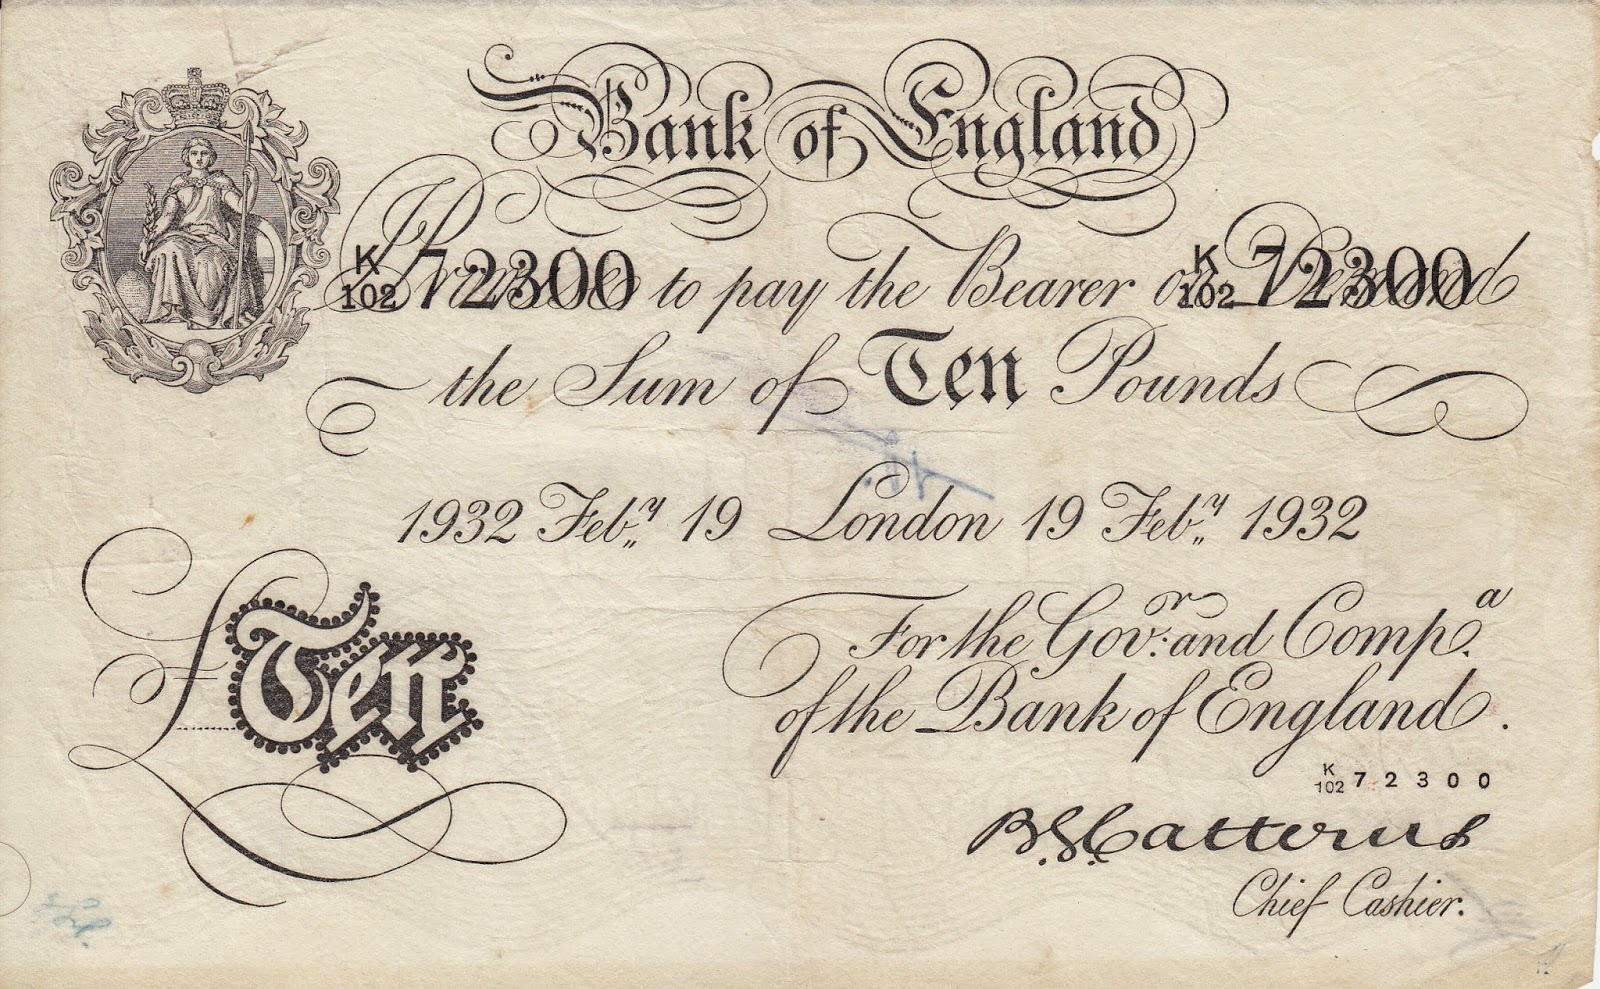 Bank of England
K/102 72300 Promise to pay the Bearer on Demand K/102 72300
the Sum of Ten Pounds
1932 Feby 19 London 19 Feby 1932
For the Govr: and Compa.
of the Bank of England.
£Ten
K/102 72300
B.G.Catterns
Chief Cashier.